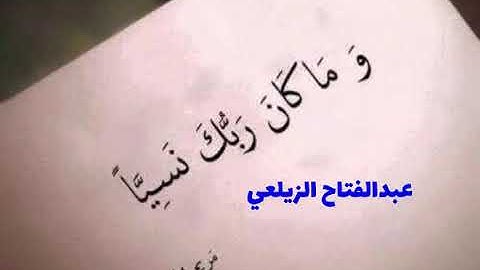 وَ مَا كَانَ رَبُّكَ نَسِيَّاً
عبدالفتاح الزيلعي